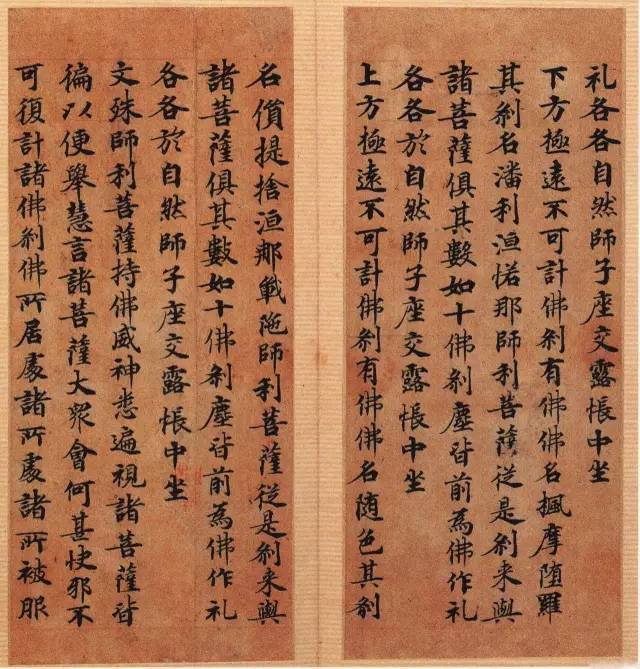 礼各各自然師子座交露悵中坐
下方極遠不可計佛剎有佛佛名楓摩墮羅
其剎名潘利洹惒那師利菩薩從是剎来與
諸菩薩俱其數如十佛剎塵皆前為佛作礼
各各於自然師子座交露悵中坐
上方極遠不可計佛剎有佛佛名随色其剎
名償提捨洹那戰陁師利菩薩從是剎来與
諸菩薩俱其數如十佛剎塵皆前為佛作礼
各各於自然師子座交露悵中坐
文殊師利菩薩持佛威神悉遍視諸菩薩皆
徧以便舉慧言諸菩薩大眾會何甚快邪不
可復計諸佛剎佛所居處諸所處諸所被服